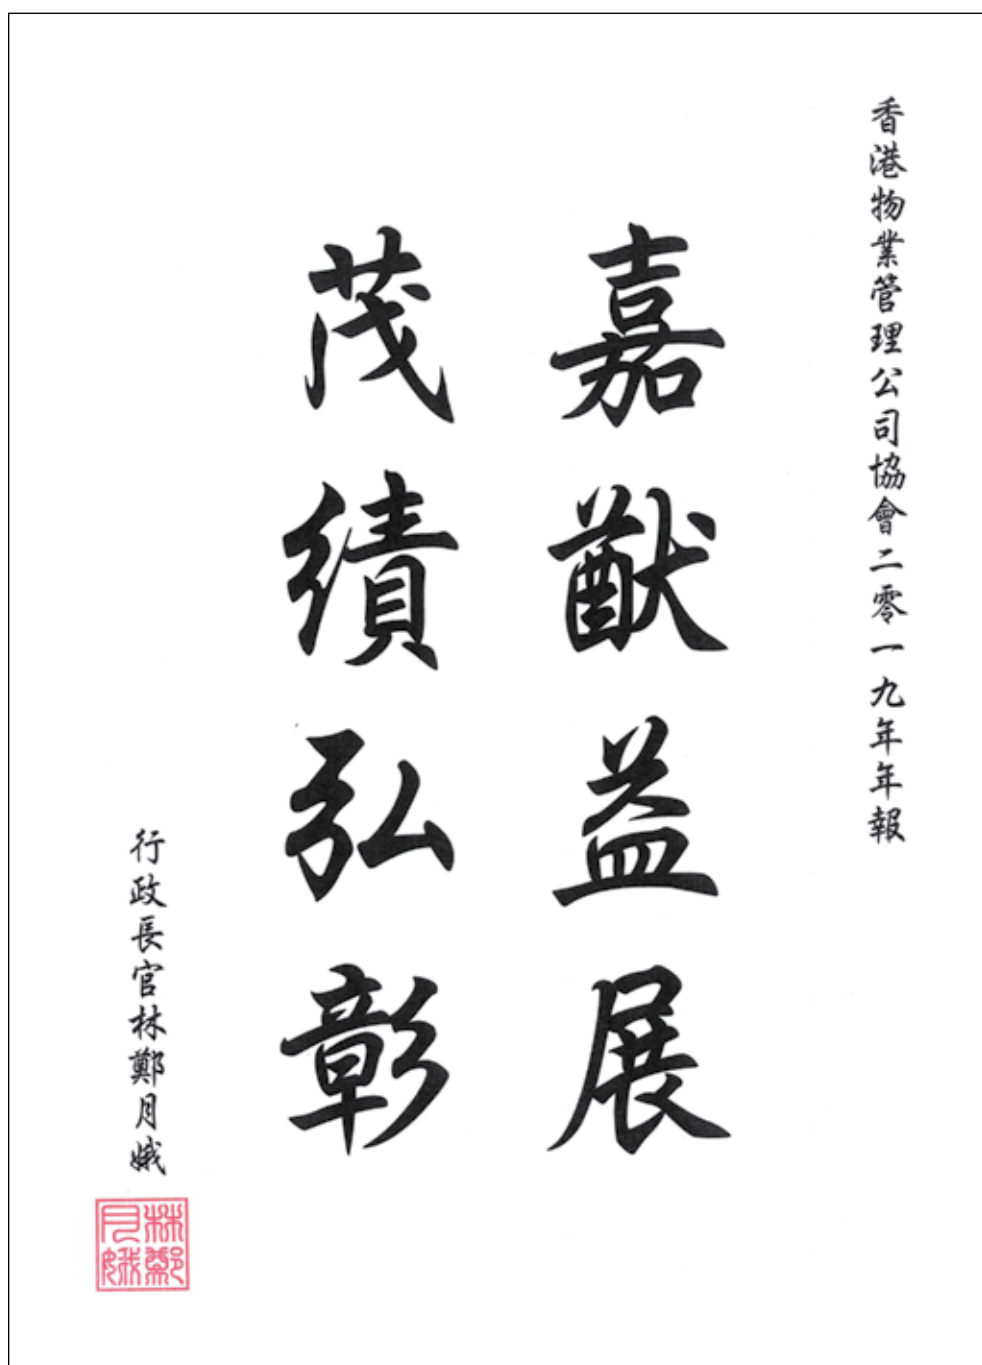 香港物業管理公司協會二零一九年年報
嘉猷益展
茂績弘彰
行政長官林鄭月娥
林鄭月娥